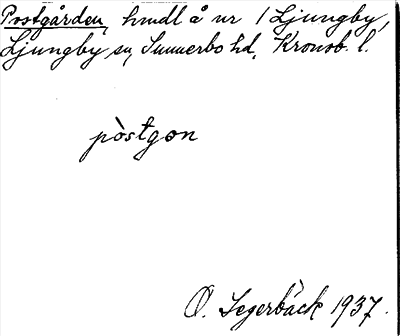 Postgården, hmdl å nr 1 Ljungby,
Ljungby sn, Sunnerbo hd, Kronob. l.
pòstgon
O. Segerbäck 1937.